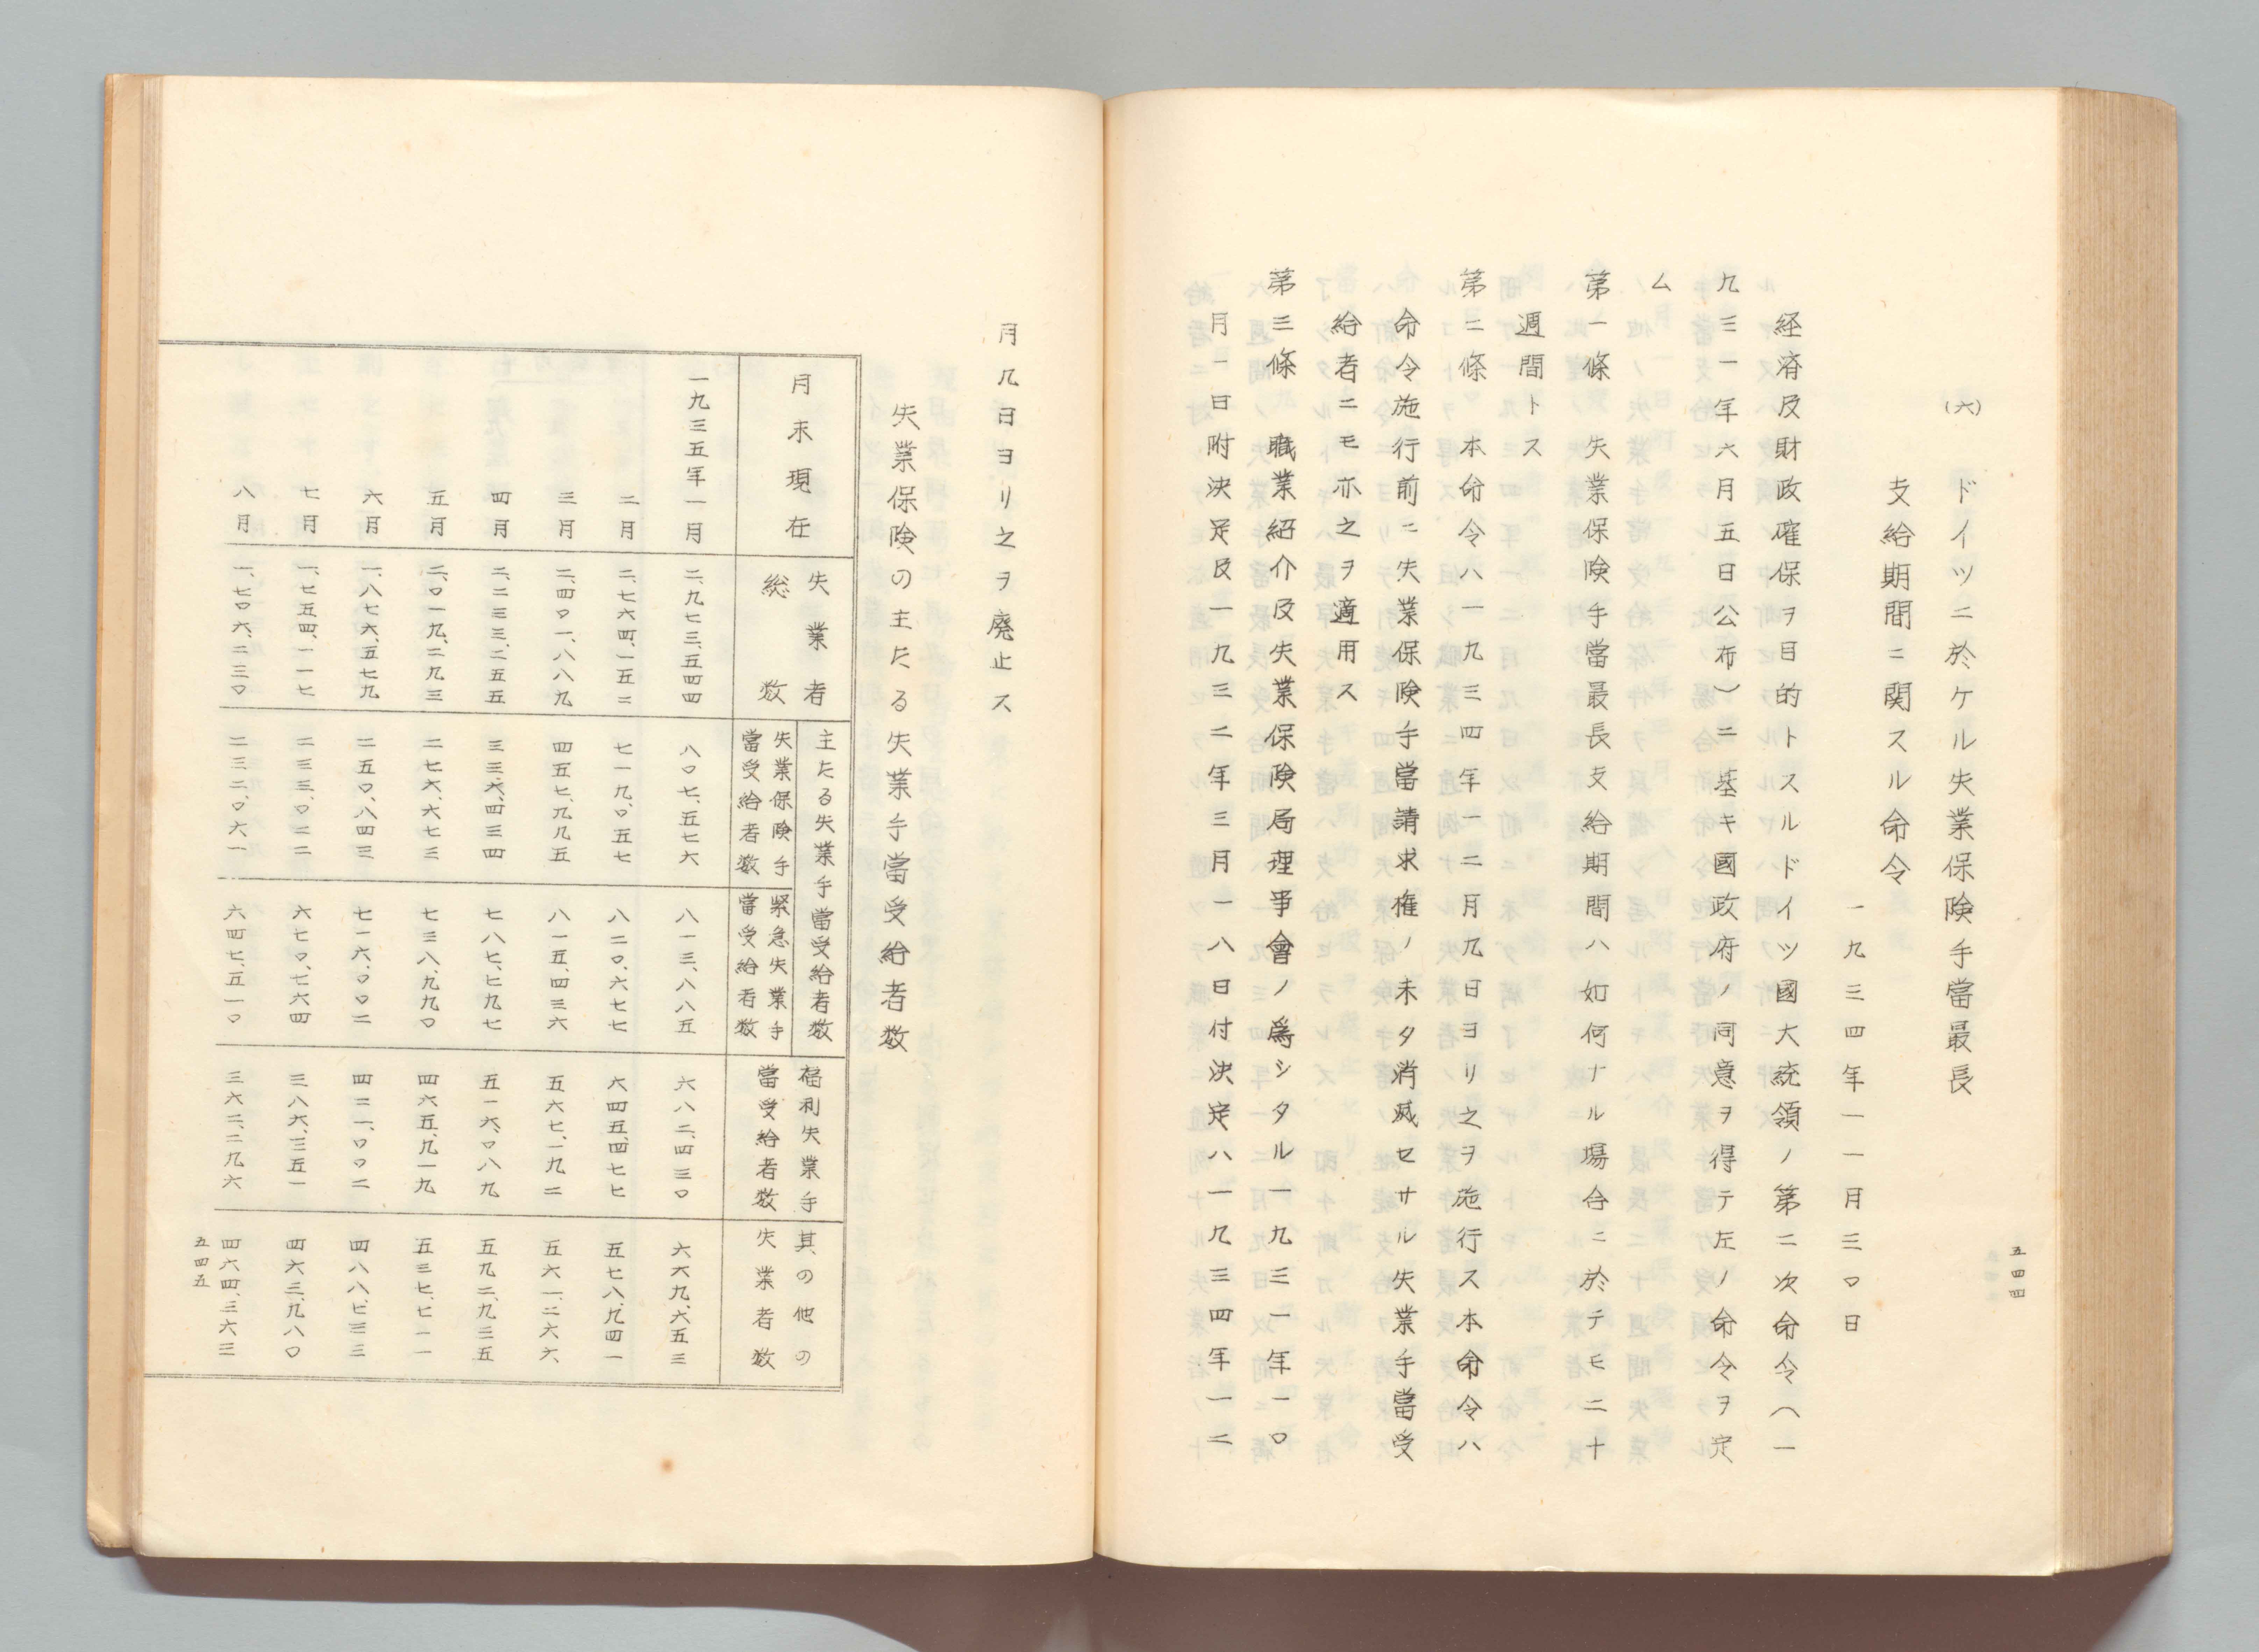 五四四
(六) ドイツニ於ケル失業保険手當最長
支給期間ニ関スル命令
一九三四年一一月三〇日
経済及財政確保ヲ目的トスルドイツ國大統領ノ第二次命令（一
九三一年六月五日公布）ニ基キ國政府ノ同意ヲ得テ左ノ命令ヲ定
ム
第一條 失業保険手當最長支給期間ハ如何ナル場合ニ於テモ二十
週間トス
第二條 本命令ハ一九三四年一二月九日ヨリ之ヲ施行ス本命令ハ
命令施行前ニ失業保険手當請求権ノ未タ消滅セサル失業手當受
給者ニモ亦之ヲ適用ス
第三條 職業紹介及失業保険局理事會ノ爲シタル一九三一年一〇
月一日附決定及一九三二年三月一八日付決定ハ一九三四年一二
月九日ヨリ之ヲ廃止ス
失業保険の主たる失業手當受給者数
月末現在
失業者
総数
主たる失業手當受給者数
失業保険手
當受給者数
緊急失業手
當受給者数
福利失業手
當受給者数
其の他の
失業者数
一九三五年一月 二、九七三、五四四 八〇七、五七六 八一三、八八五 六八二、四三〇 六六九、六五三
二月 二、七六四、一五二 七一九、〇五七 八二〇、六七七 六四五、四七七 五七八、九四一
三月 二、四〇一、八八九 四五七、九九五 八一五、四三六 五六七、一九二 五六一、二六六
四月 二、二三三、二五五 三三六、四三四 七八七、七九七 五一六、〇八九 五九二、九三五
五月 二、〇一九、二九三 二七六、六七三 七三八、九九〇 四六五、九一九 五三七、七一一
六月 一、八七六、五七九 二五〇、八四三 七一六、〇〇二 四二一、〇〇二 四八八、七三三
七月 一、七五四、一一七 二三三、〇二二 六七〇、七六四 三八六、三五一 四六三、九八〇
八月 一、七〇六、二三〇 二三二、〇六一 六四七、五一〇 三六二、二九六 四六四、三六三
五四五